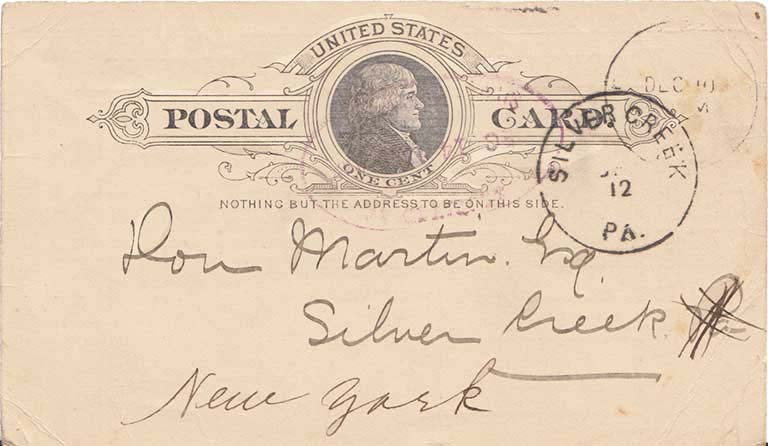 UNITED STATES
POSTAL CARD.
ONE CENT
NOTHING BUT THE ADDRESS TO BE ON THIS SIDE.
DEC 10
SILVER CREEK
12
PA.
Don Martin. Esq
Silver Creek
New York